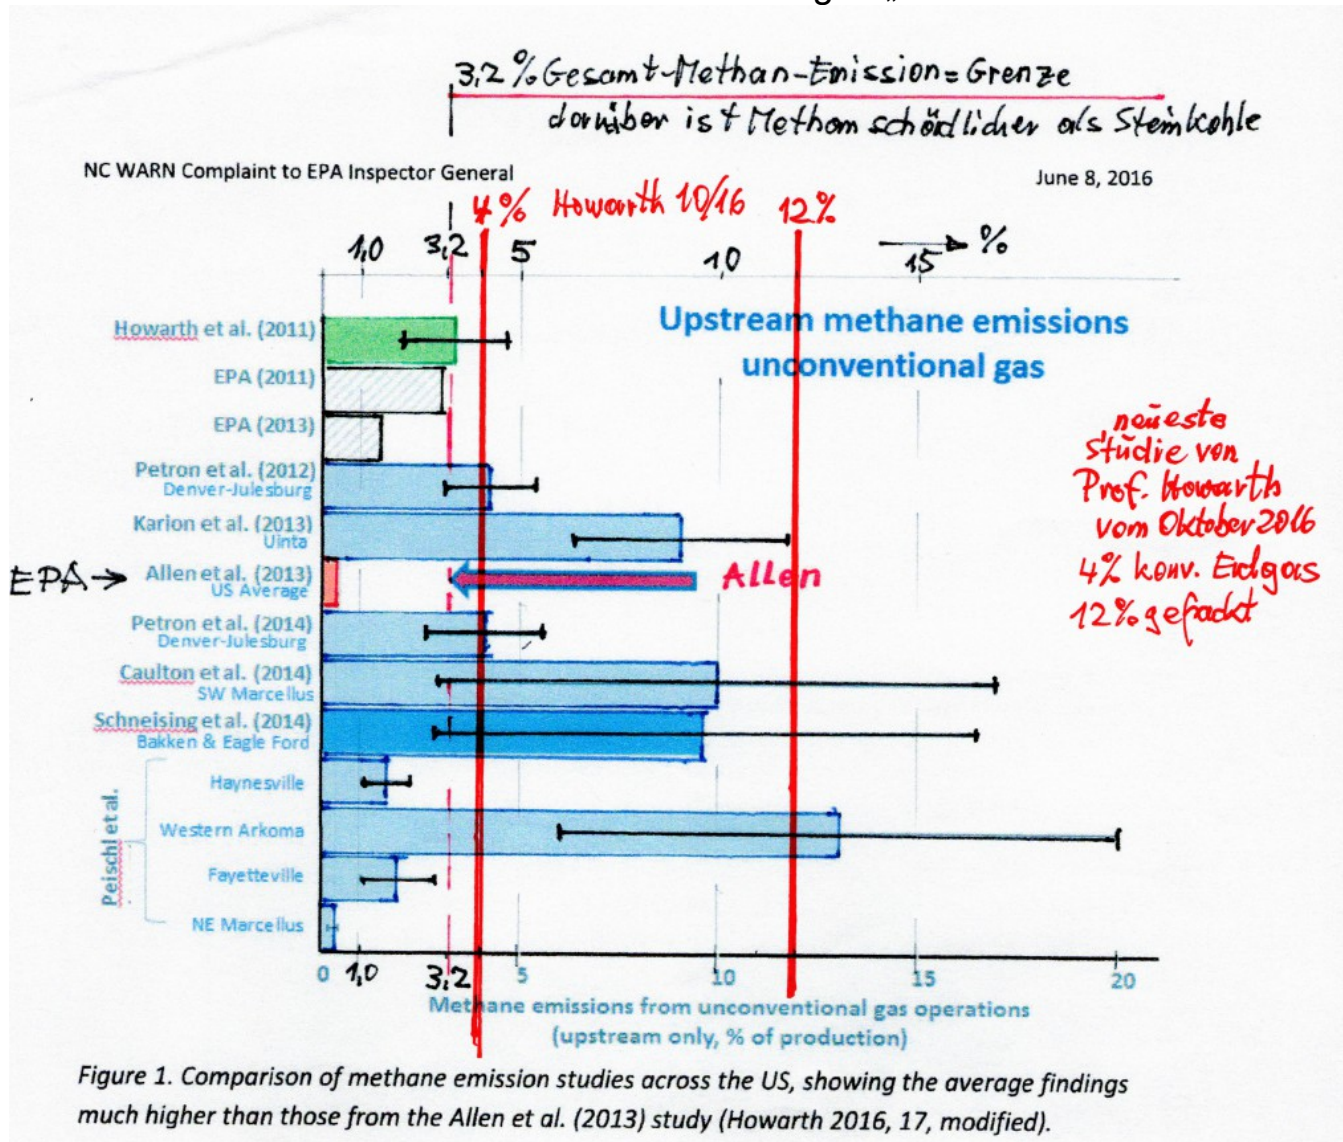 3,2 % Gesamt-Methan-Emission = Grenze
darüber ist Methan schädlicher als Steinkohle
NC WARN Complaint to EPA Inspector General
June 8, 2016
4% Howarth 10/16 12%
1,0 3,2 5 10 15 → %
Upstream methane emissions
unconventional gas
Howarth et al. (2011)
EPA (2011)
EPA (2013)
Petron et al. (2012)
Denver-Julesburg
Karion et al. (2013)
Uinta
EPA → Allen et al. (2013)
US Average
Allen
Petron et al. (2014)
Denver-Julesburg
Caulton et al. (2014)
SW Marcellus
Schneising et al. (2014)
Bakken & Eagle Ford
Peischl et al.
Haynesville
Western Arkoma
Fayetteville
NE Marcellus
neueste
Studie von
Prof. Howarth
vom Oktober 2016
4% konv. Erdgas
12% gefrackt
0 1,0 3,2 5 10 15 20
Methane emissions from unconventional gas operations
(upstream only, % of production)
Figure 1. Comparison of methane emission studies across the US, showing the average findings
much higher than those from the Allen et al. (2013) study (Howarth 2016, 17, modified).